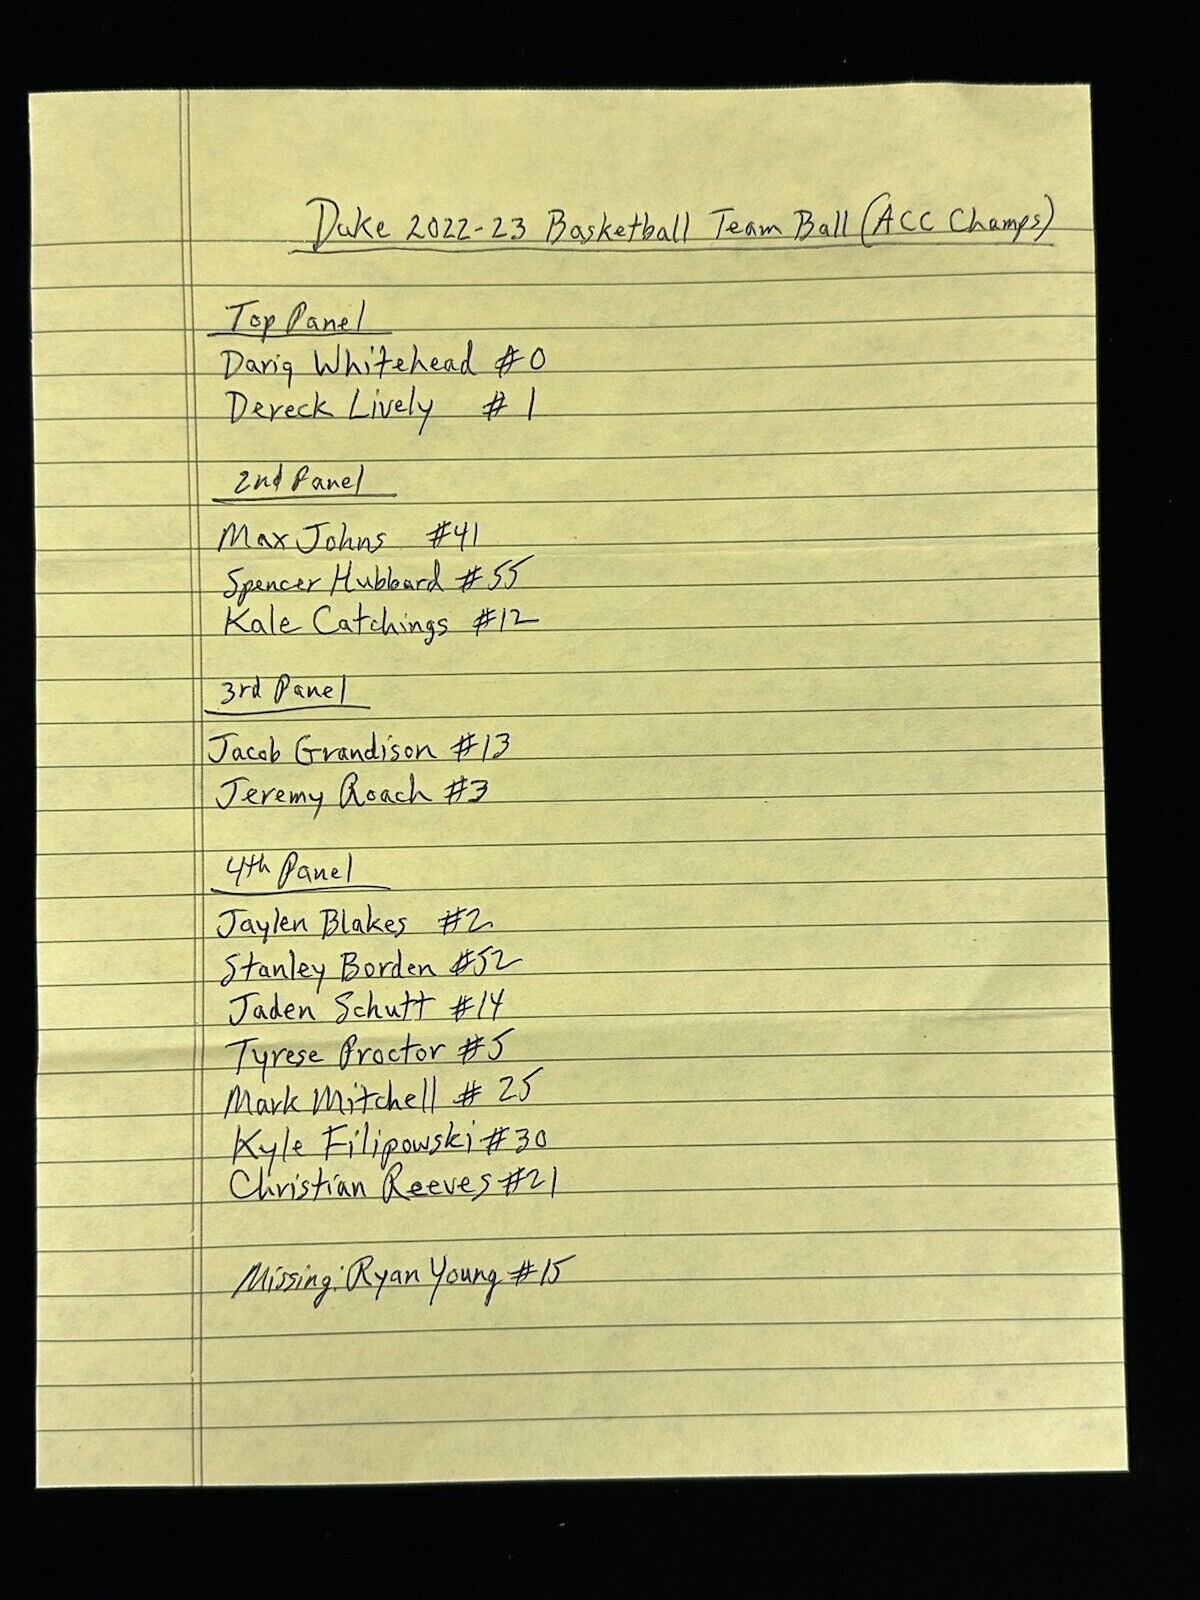 Duke 2022-23 Basketball Team Ball (ACC Champs)
Top Panel
Dariq Whitehead #0
Dereck Lively #1
2nd Panel
Max Johns #41
Spencer Hubbard #55
Kale Catchings #12
3rd Panel
Jacob Grandison #13
Jeremy Roach #3
4th Panel
Jaylen Blakes #2
Stanley Borden #52
Jaden Schutt #14
Tyrese Proctor #5
Mark Mitchell #25
Kyle Filipowski #30
Christian Reeves #21
Missing: Ryan Young #15